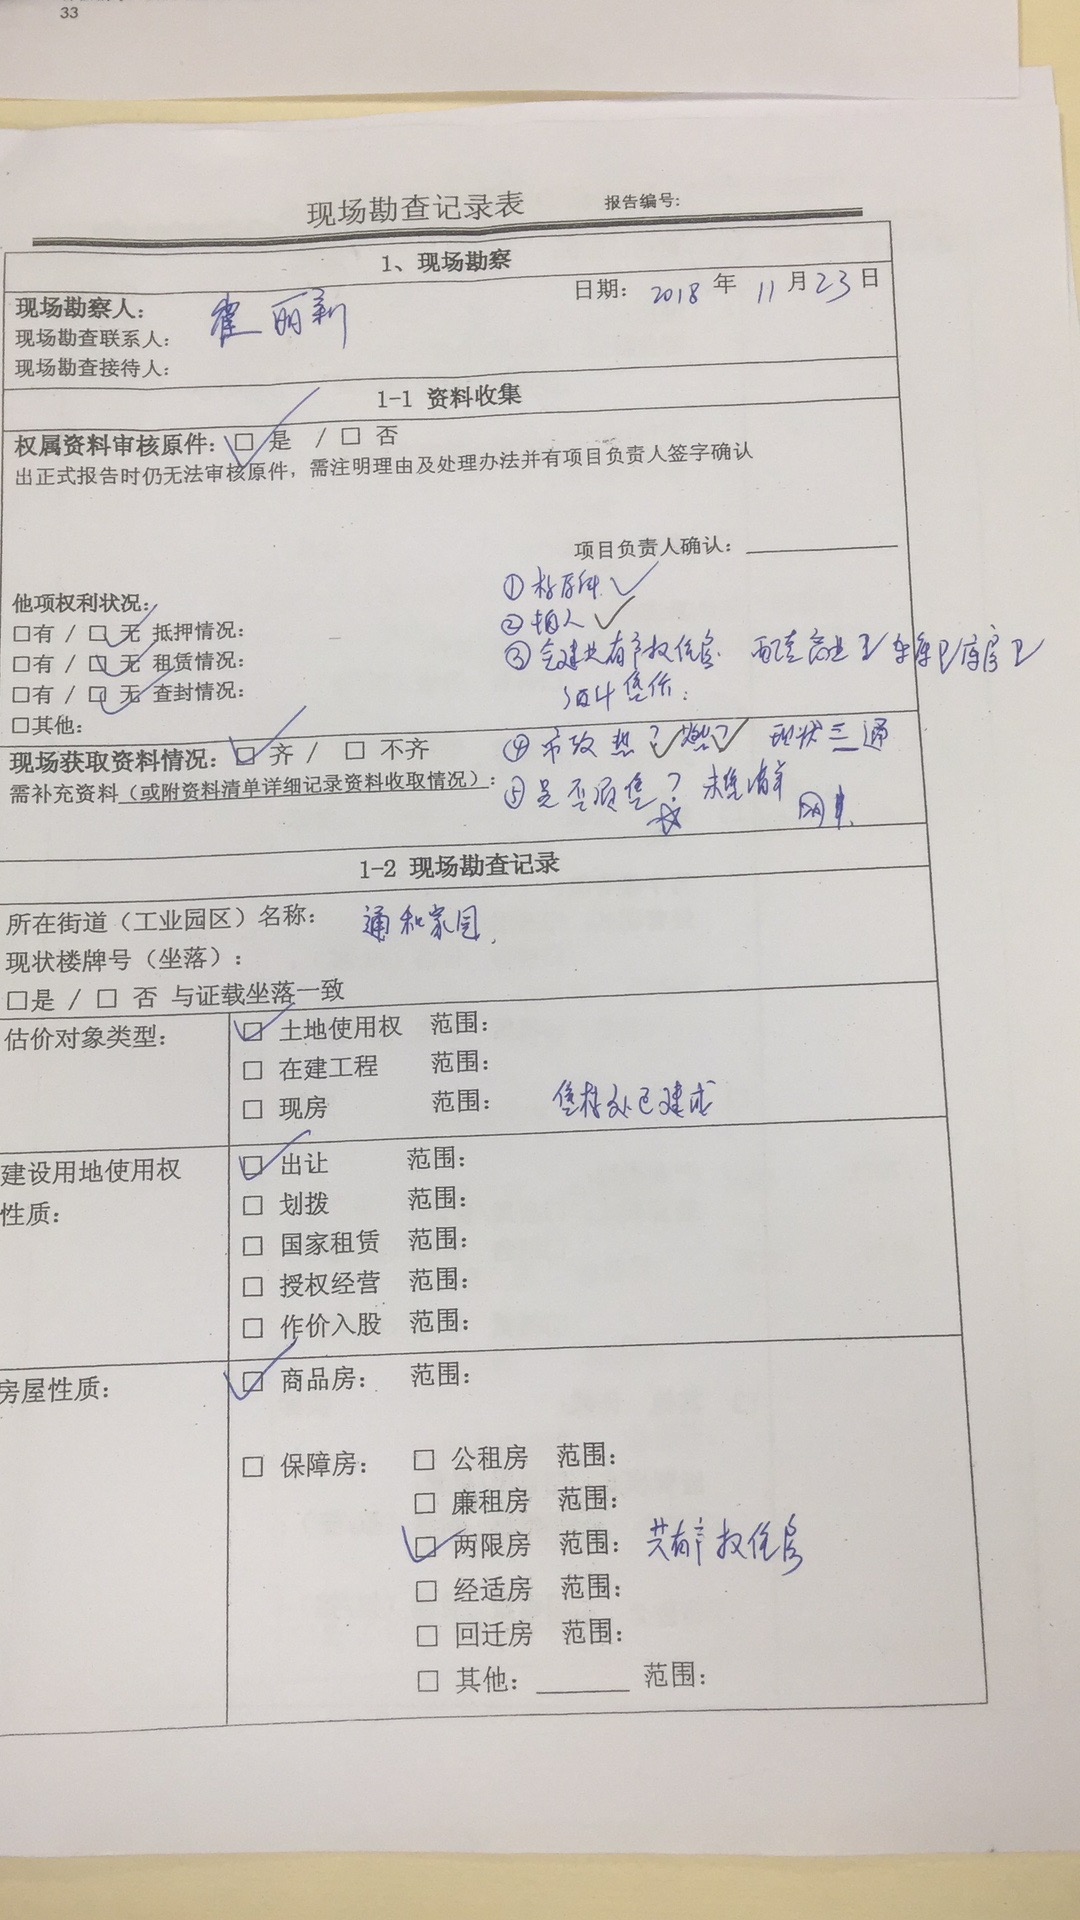 33
现场勘查记录表 报告编号:
1、现场勘察
现场勘察人： 日期： 2018 年 11 月 23 日
现场勘查联系人： 丽新
现场勘查接待人：
1-1 资料收集
权属资料审核原件：□ 是 / □ 否
出正式报告时仍无法审核原件，需注明理由及处理办法并有项目负责人签字确认
项目负责人确认：
① 核原件
他项权利状况：
② 拍人
□有 / □ 无 抵押情况：
③ 建共有产权住房 配套 车库 库房
□有 / □ 无 租赁情况：
□有 / □ 无 查封情况：
□其他：
④ 市政 热? 燃? 现状三通
现场获取资料情况：□ 齐 / □ 不齐
⑤ 是否预售?
需补充资料（或附资料清单详细记录资料收取情况）：
1-2 现场勘查记录
所在街道（工业园区）名称： 通和家园
现状楼牌号（坐落）：
□是 / □ 否 与证载坐落一致
估价对象类型： □ 土地使用权 范围：
□ 在建工程 范围：
□ 现房 范围： 已建成
建设用地使用权 □ 出让 范围：
性质： □ 划拨 范围：
□ 国家租赁 范围：
□ 授权经营 范围：
□ 作价入股 范围：
房屋性质： □ 商品房： 范围：
□ 保障房： □ 公租房 范围：
□ 廉租房 范围：
□ 两限房 范围： 共有产权住房
□ 经适房 范围：
□ 回迁房 范围：
□ 其他：_______ 范围：